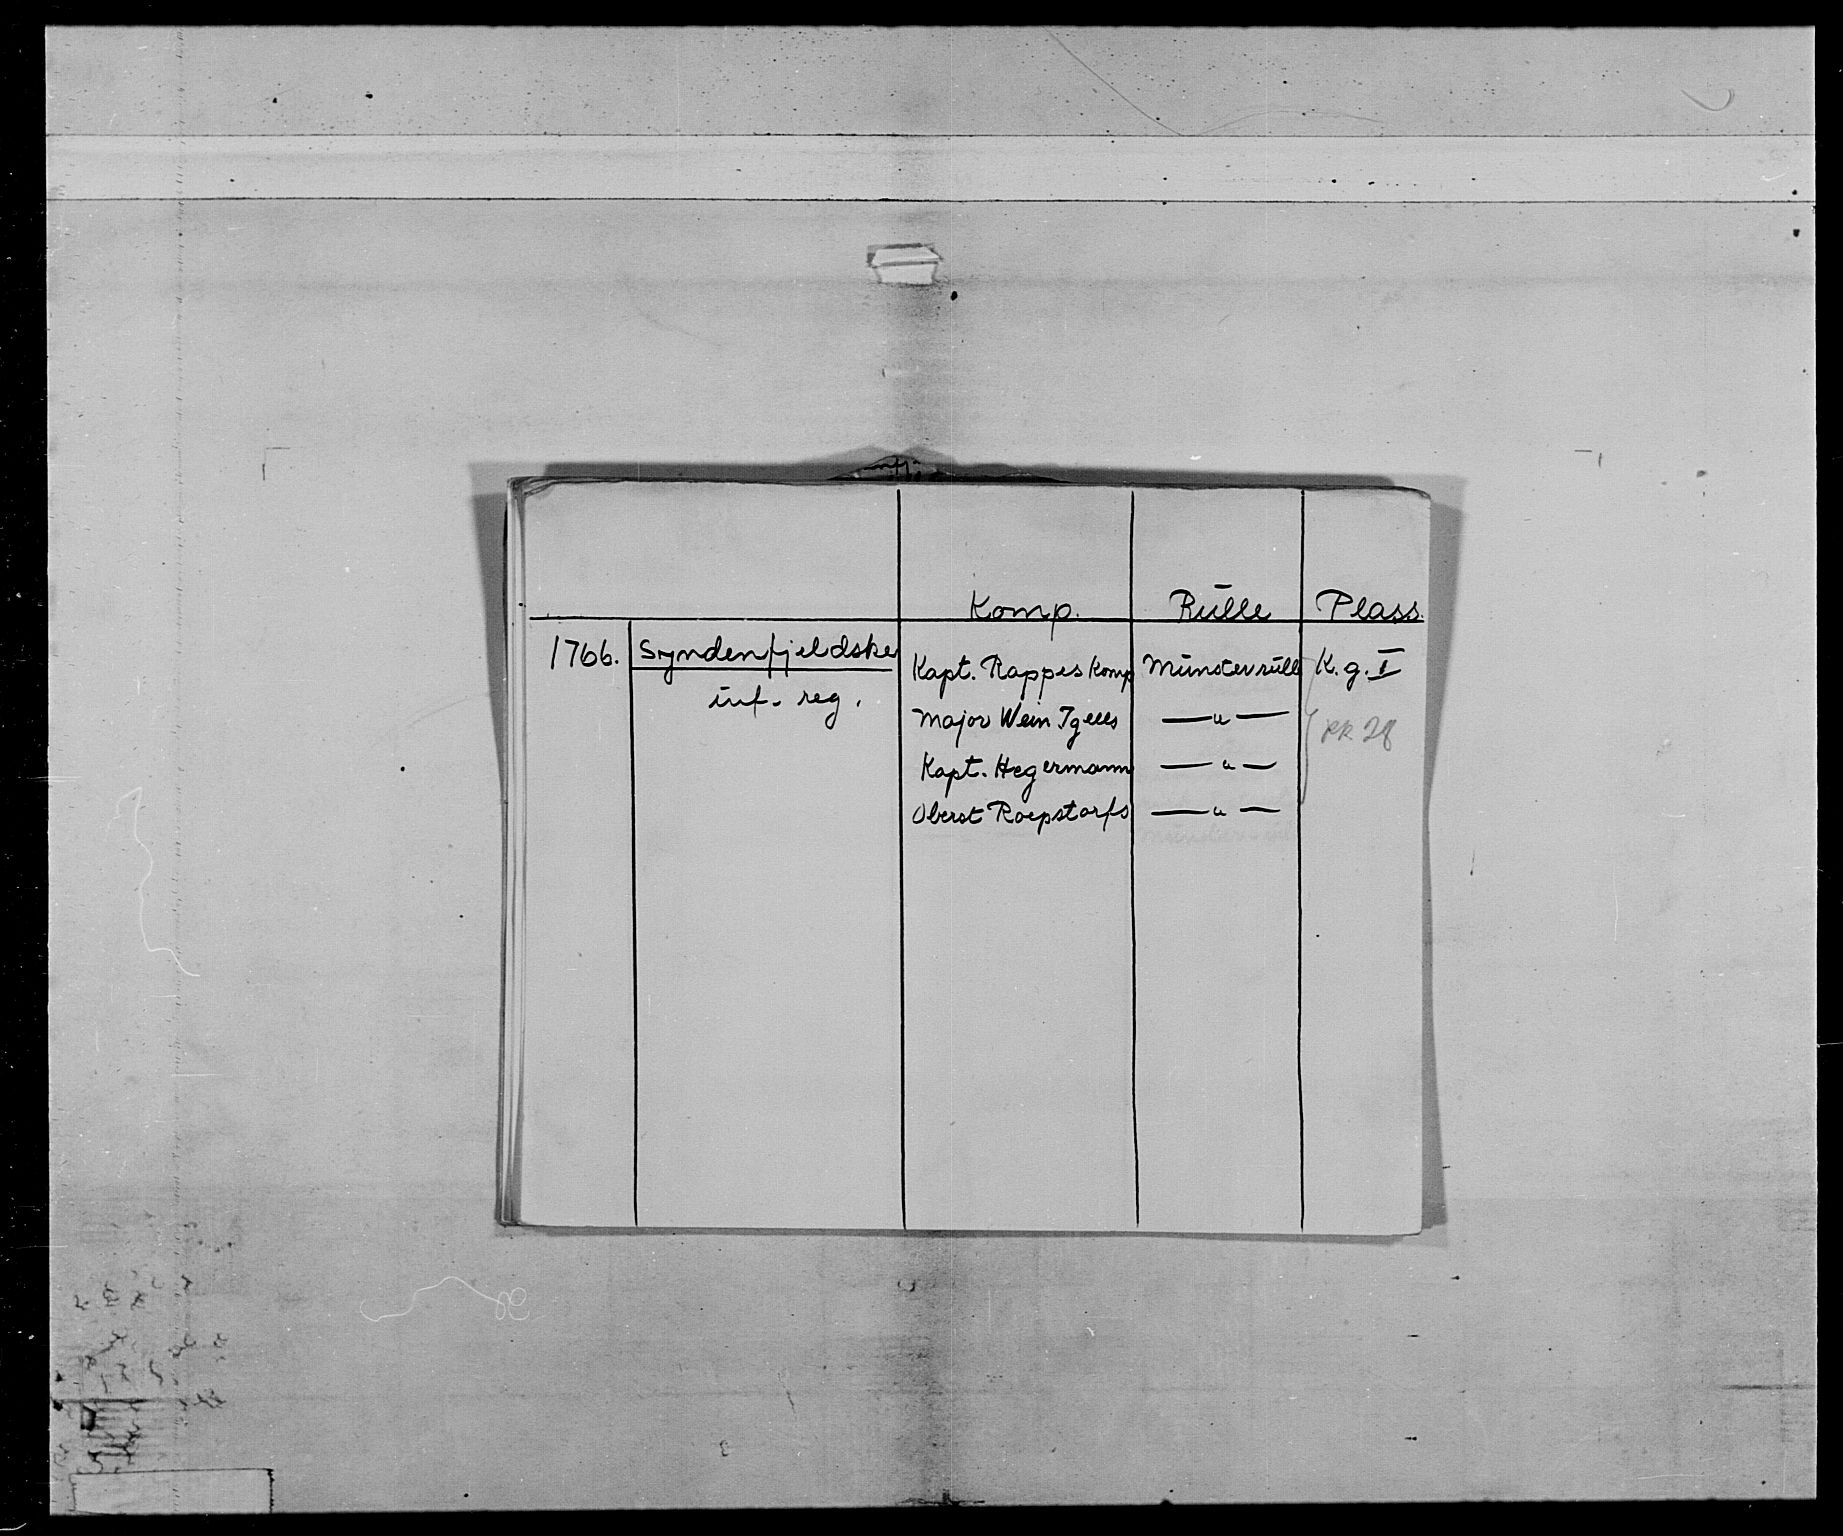 Komp. Rulle Plass.
1766. Syndenfjeldske Kapt. Rappes Komp Münsterrulle K.g. I
inf. reg. Major Wein Igells — " — RK 28
Kapt. Hegermann — " —
Oberst Roepstorfs — " —